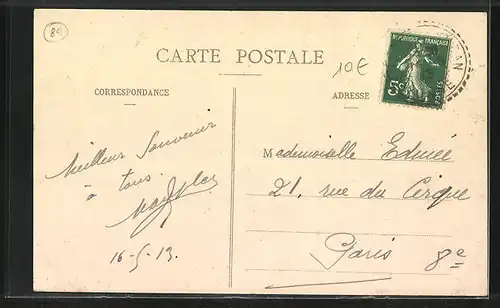 89
CARTE POSTALE
10€
REPUBLIQUE FRANÇAISE
5c
POSTES
CORRESPONDANCE
ADRESSE
Meilleur Souvenir
à tous.
16-5-19.
Mademoiselle Edmée
21, rue du Cirque
Paris 8e